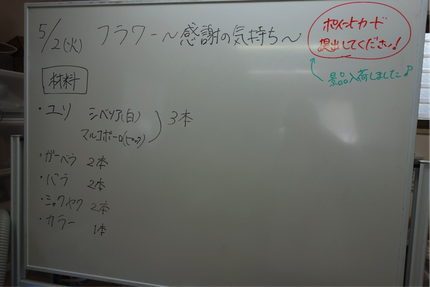 5/2(火) フラワー ～感謝の気持ち～
ポイントカード
提出してください!
景品入荷しました♪
材料
・ユリ シベリア(白)
マルコポーロ(ピンク)
3本
・ガーベラ 2本
・バラ 2本
・シャクヤク 2本
・カラー 1本